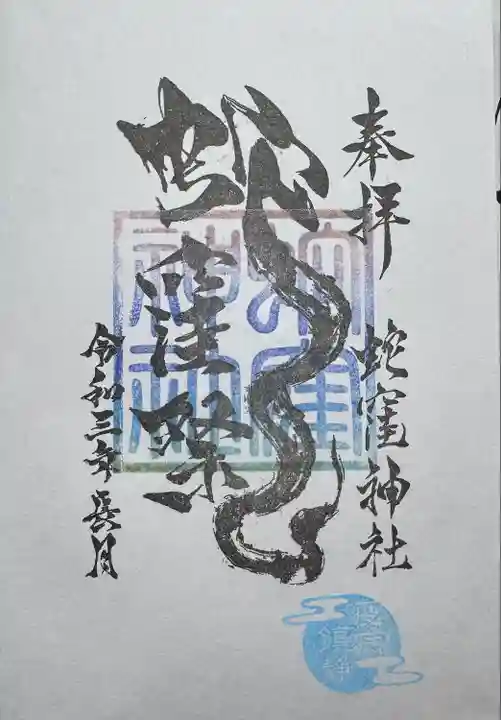 奉拝 蛇窪神社
蛇窪祭
令和三年長月
蛇窪神社
疫病鎮静